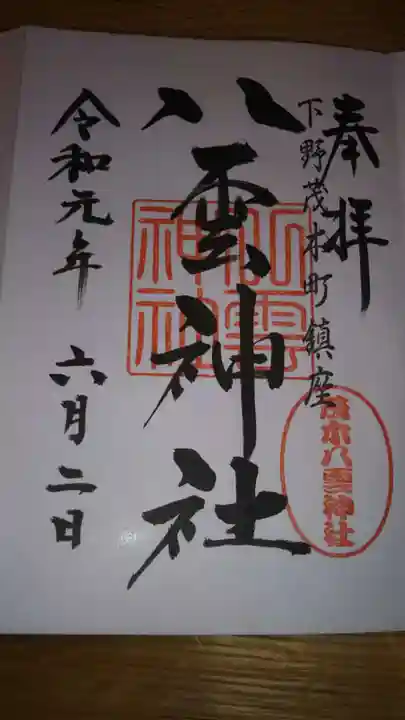 奉拝
下野茂木町鎮座
八雲神社
令和元年 六月二日
八雲神社
茂木八雲神社